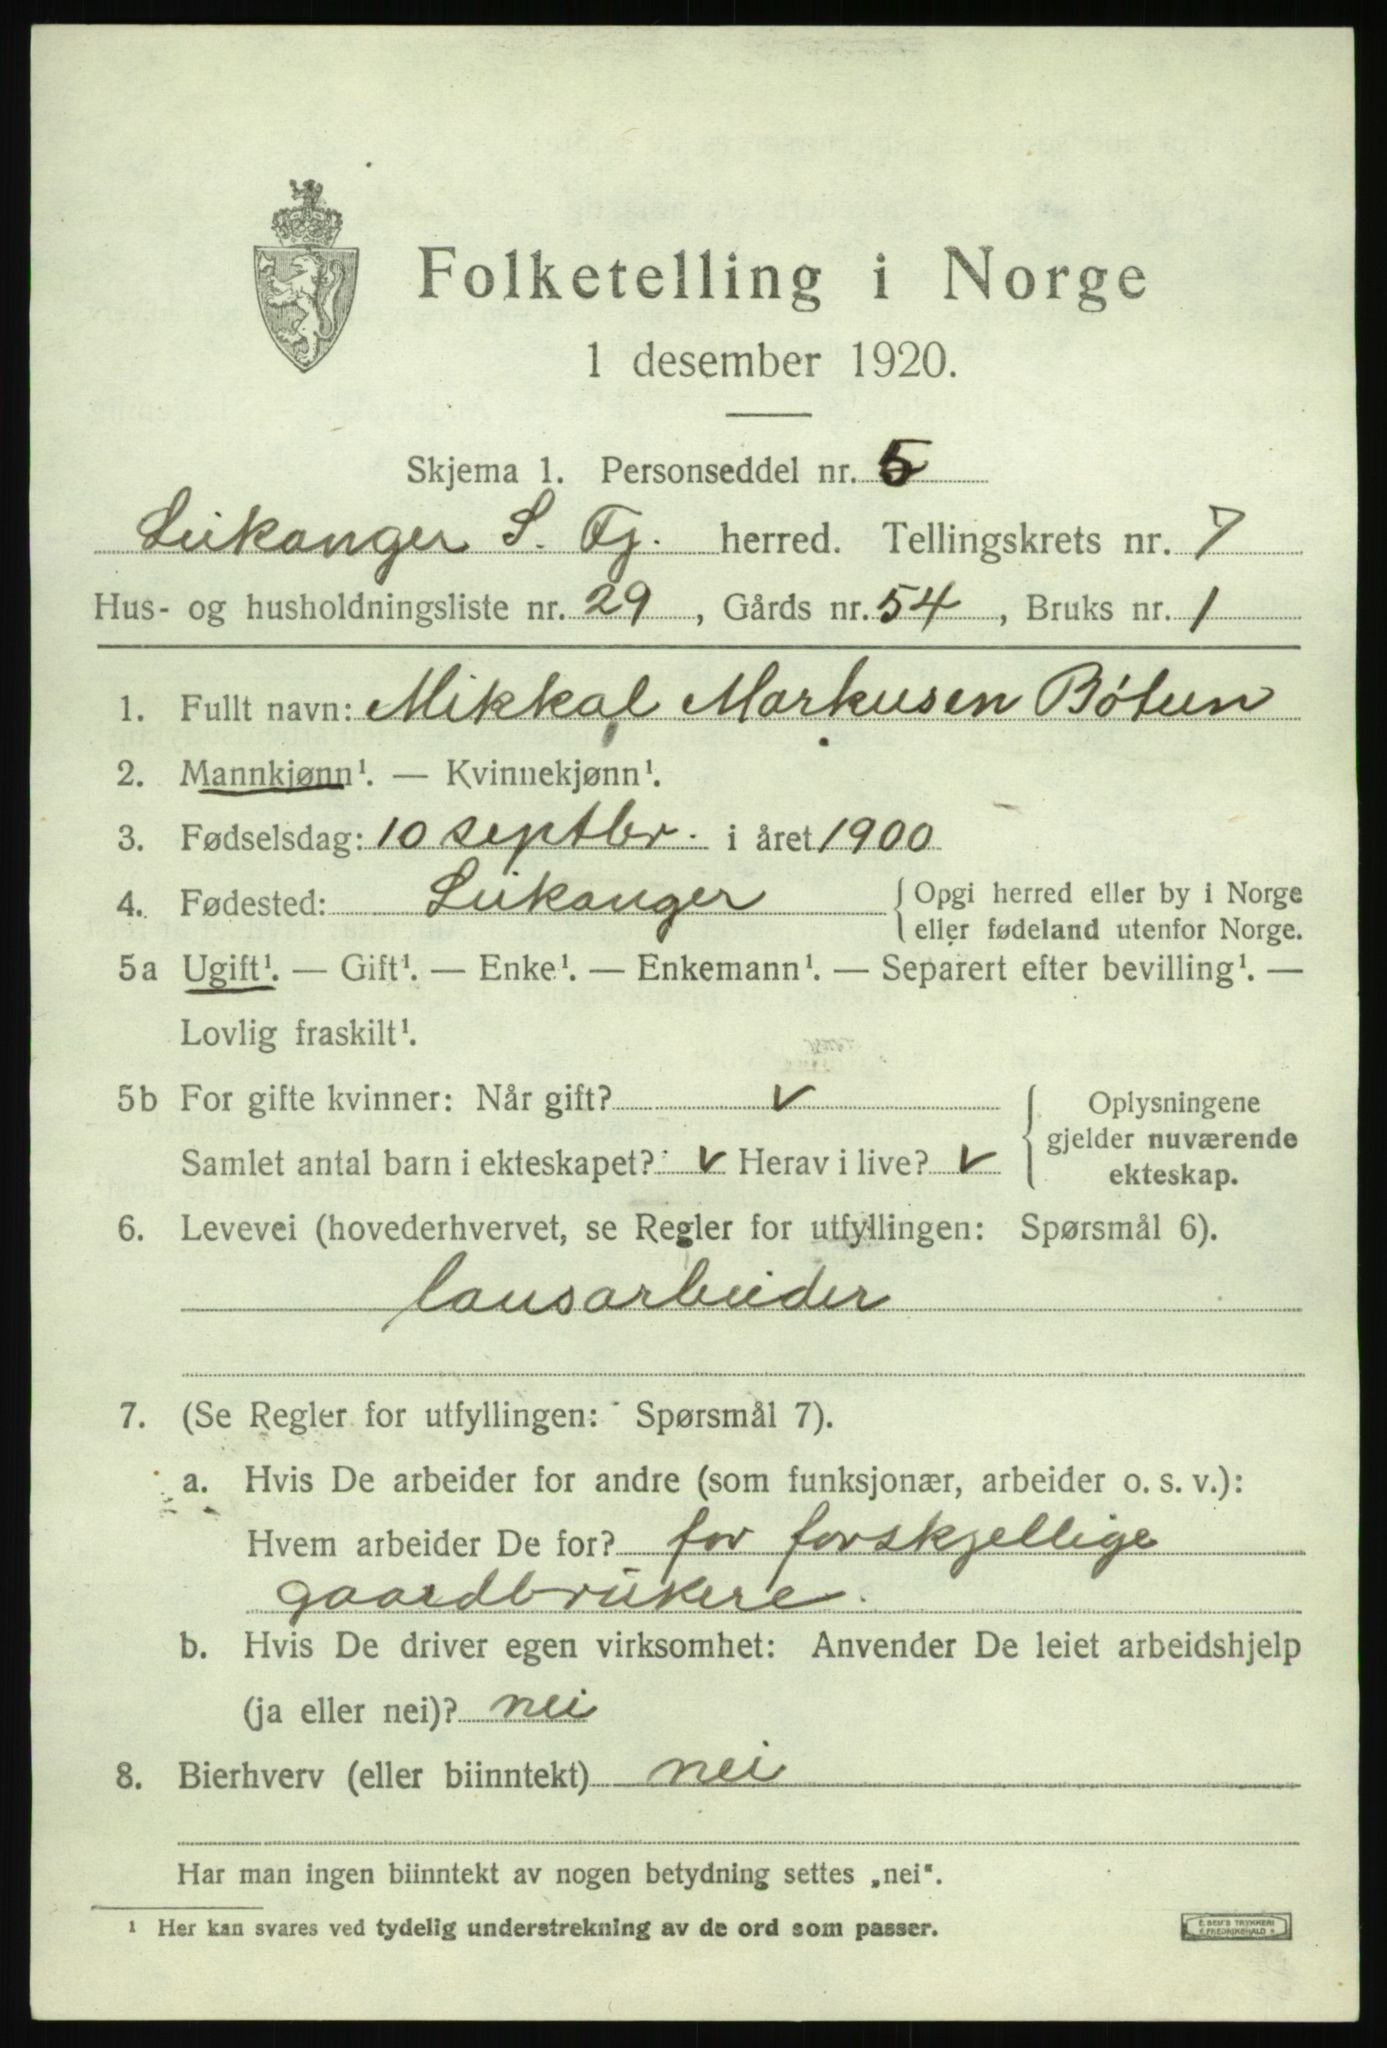 Folketelling i Norge
1 desember 1920.
Skjema 1. Personseddel nr. 5
Leikanger S. Fj. herred. Tellingskrets nr. 7
Hus- og husholdningsliste nr. 29, Gårds nr. 54, Bruks nr. 1
1. Fullt navn: Mikkal Markusen Bøtun
2. Mannkjønn¹. — Kvinnekjønn¹.
3. Fødselsdag: 10 septbr. i året 1900
4. Fødested: Leikanger {Opgi herred eller by i Norge
eller fødeland utenfor Norge.
5a Ugift¹. — Gift¹. — Enke¹. — Enkemann¹. — Separert efter bevilling¹. —
Lovlig fraskilt¹.
5b For gifte kvinner: Når gift? v
Samlet antal barn i ekteskapet? v Herav i live? v
{Oplysningene
gjelder nuværende
ekteskap.
6. Levevei (hovederhvervet, se Regler for utfyllingen: Spørsmål 6).
lausarbeider
7. (Se Regler for utfyllingen: Spørsmål 7).
a. Hvis De arbeider for andre (som funksjonær, arbeider o. s. v.):
Hvem arbeider De for? for forskjellige
gaardbrukere.
b. Hvis De driver egen virksomhet: Anvender De leiet arbeidshjelp
(ja eller nei)? nei
8. Bierhverv (eller biinntekt) nei
Har man ingen biinntekt av nogen betydning settes „nei“.
¹ Her kan svares ved tydelig understrekning av de ord som passer.
E. SEM'S TRYKKERI
FREDRIKSHALD